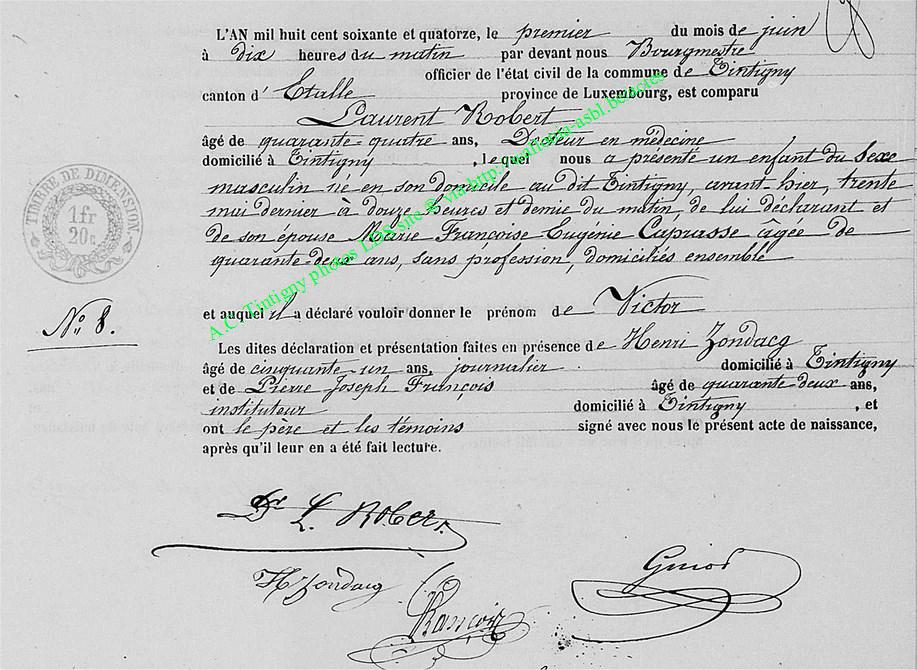 L'AN mil huit cent soixante et quatorze, le premier du mois de juin
à dix heures du matin par devant nous Bourgmestre
officier de l'état civil de la commune de Tintigny
canton d' Etalle province de Luxembourg, est comparu
Laurent Robert
âgé de quarante-quatre ans, Docteur en médecine
domicilié à Tintigny , lequel nous a présenté un enfant du sexe
masculin né en son domicile au dit Tintigny, avant-hier, trente
mai dernier à douze heures et demie du matin, de lui déclarant et
de son épouse Marie Françoise Eugenie Caprasse agée de
quarante-deux ans, sans profession, domiciliés ensemble
et auquel il a déclaré vouloir donner le prénom de Victor
Les dites déclaration et présentation faites en présence de Henri Zondacq
âgé de cinquante un ans, journalier domicilié à Tintigny
et de Pierre Joseph François âgé de quarante deux ans,
instituteur domicilié à Tintigny , et
ont le père et les témoins signé avec nous le présent acte de naissance,
après qu'il leur en a été fait lecture.
TIMBRE DE DIMENSION.
1fr
20c
No. 8.
A.C. Tintigny photos LDS, site ® via http:
Dr L. Robert
H Zondacq
François